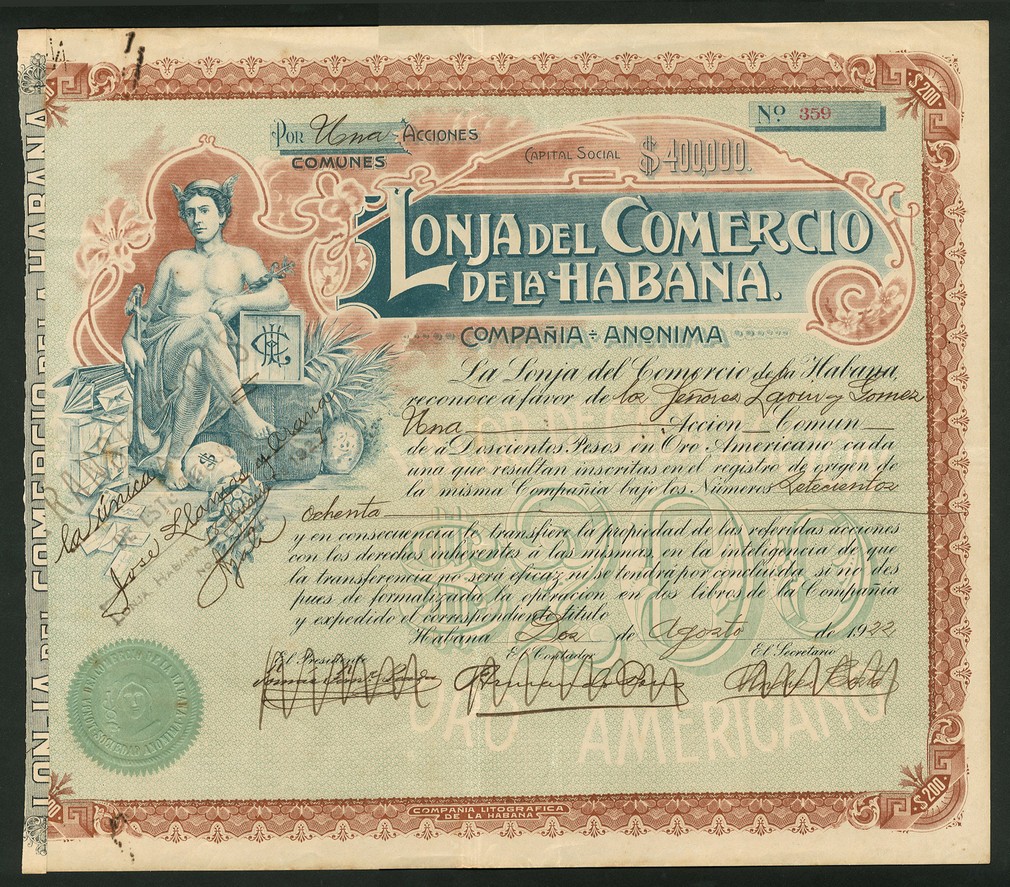 Nº 359
POR Una ACCIONES
COMUNES
CAPITAL SOCIAL $400,000.
$200.
LONJA DEL COMERCIO
DE LA HABANA.
COMPAÑIA ANONIMA
La Lonja del Comercio de la Habana,
reconoce á favor de los Señores y Gomez
Una Accion Comun
de á Doscientos Pesos en Oro Americano cada
una que resultan inscritas en el registro de origen de
la misma Compañia bajo los Números Setecientos
ochenta
y en consecuencia le transfiere la propiedad de las referidas acciones
con los derechos inherentes á las mismas en la inteligencia de que
la transferencia no será eficaz, ni se tendrá por concluida, si no des
pues de formalizada la operación en los libros de la Compañia
y expedido el correspondiente titulo
Habana Dos de Agosto de 1922
El Presidente El Contador El Secretario
$200
ORO AMERICANO
Jose Llamas
LONJA DEL COMERCIO DE LA HABANA
$200.
COMPAÑIA LITOGRAFICA
DE LA HABANA